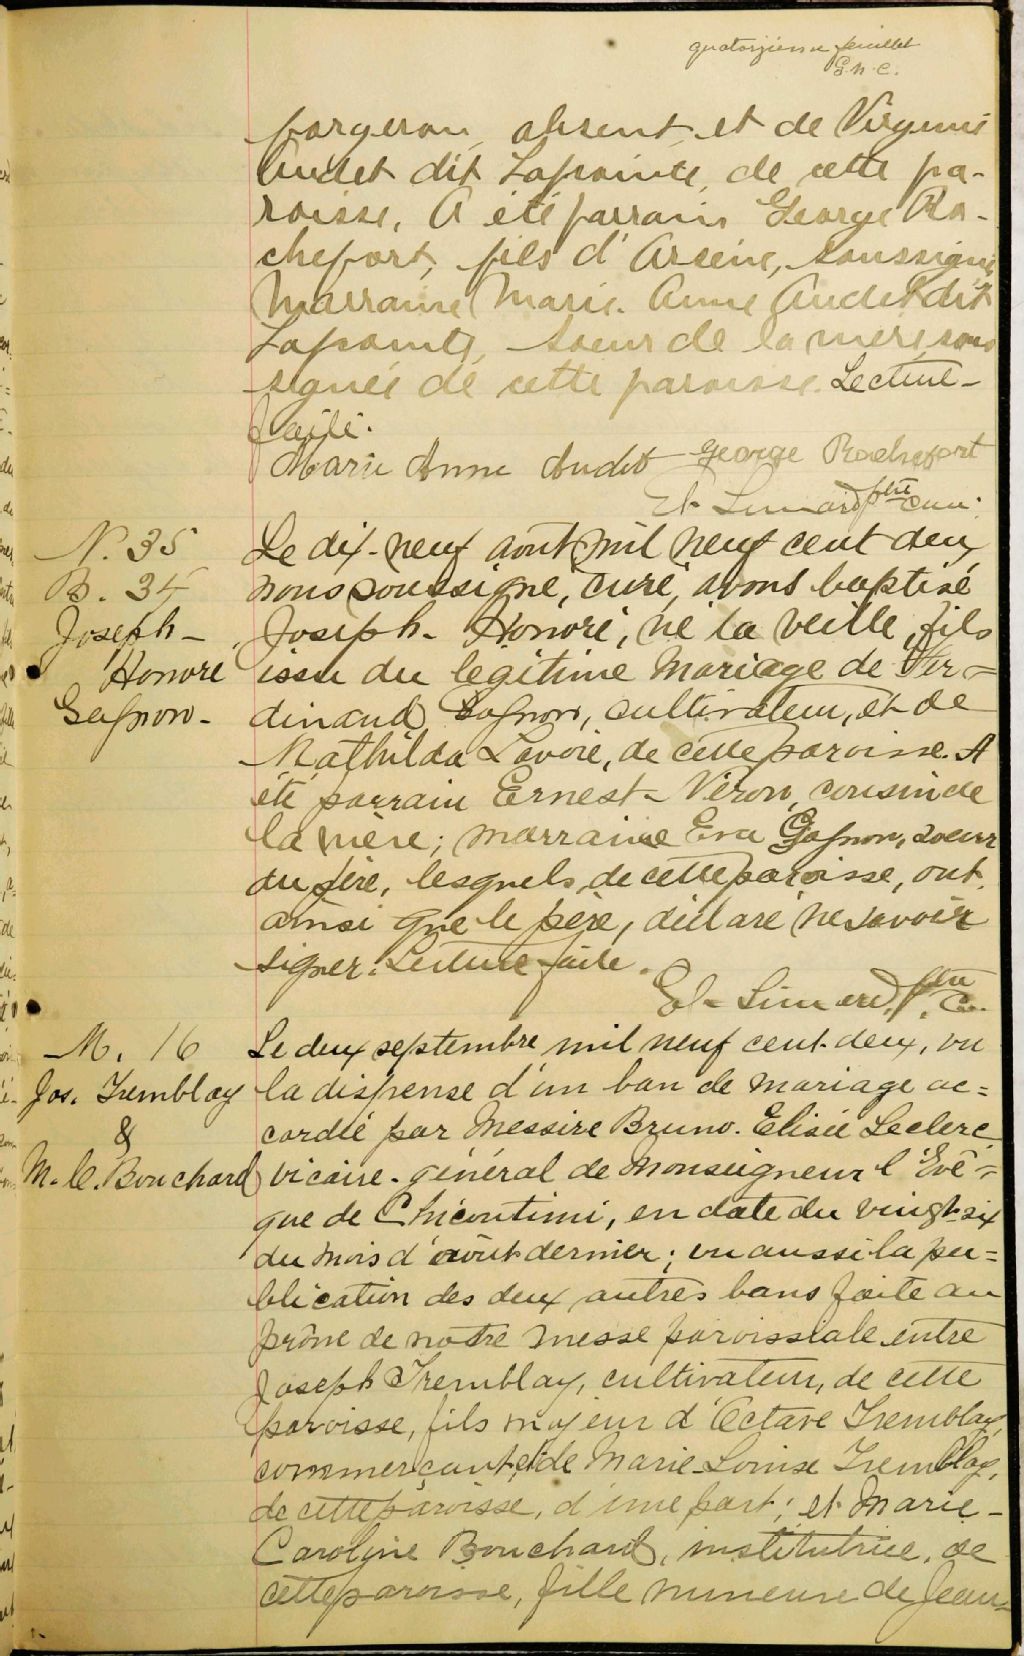 quatorzième feuillet
forgeron, absent, et de Virginie
Audet dit Lapointe, de cette pa-
roisse. A été parrain George Ro-
chefort, fils d'Arsène, soussigné,
Marraine Marie-Anne Audet dit
Lapointe, soeur de la mère, sous
signée de cette paroisse. Lecture
faite.
Marie Anne Audet George Rochefort
El. Simard ptre curé.
N. 35
B. 34
Joseph-
Honoré
Gagnon-
Le dix-neuf août mil neuf cent deux
nous soussigné, curé, avons baptisé
Joseph-Honoré, né la veille, fils
issu du légitime mariage de Fer=
dinand Gagnon, cultivateur, et de
Mathilda Lavoie, de cette paroisse. A
été parrain Ernest Néron, cousin de
la mère; marraine Eva Gagnon, soeur
du père, lesquels, de cette paroisse, ont,
ainsi que le père, déclaré ne savoir
signer. Lecture faite.
El. Simard, ptre c.
M. 16
Jos. Tremblay
&
M. C. Bouchard
Le deux septembre mil neuf cent-deux, vu
la dispense d'un ban de mariage ac=
cordée par Messire Bruno-Elisée Leclerc,
vicaire-général de Monseigneur l'Evê=
que de Chicoutimi, en date du vingt-six
du mois d'août dernier; vu aussi la pu=
blication des deux autres bans faite au
prône de notre messe paroissiale entre
Joseph Tremblay, cultivateur, de cette
paroisse, fils majeur d'Octave Tremblay,
commerçant, et de Marie-Louise Tremblay,
de cette paroisse, d'une part; et Marie-
Caroline Bouchard, institutrice, de
cette paroisse, fille mineure de Jean-